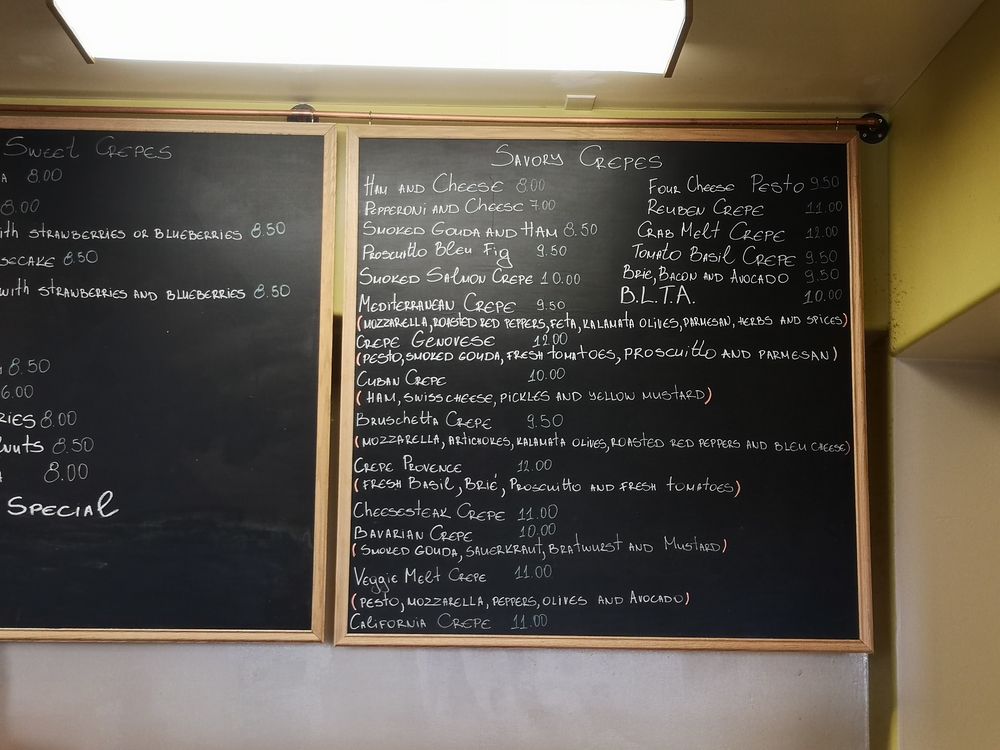 Sweet Crepes
A 8.00
8.00
ith strawberries or blueberries 8.50
secake 8.50
with strawberries and blueberries 8.50
8.50
6.00
ries 8.00
lnuts 8.50
A 8.00
Special
Savory Crepes
Ham and Cheese 8.00
Pepperoni and Cheese 7.00
Smoked Gouda and Ham 8.50
Proscuitto Bleu Fig 9.50
Smoked Salmon Crepe 10.00
Four Cheese Pesto 9.50
Reuben Crepe 11.00
Crab Melt Crepe 12.00
Tomato Basil Crepe 9.50
Brie, Bacon and Avocado 9.50
B.L.T.A. 10.00
Mediterranean Crepe 9.50
(mozzarella, roasted red peppers, feta, kalamata olives, parmesan, herbs and spices)
Crepe Genovese 12.00
(pesto, smoked gouda, fresh tomatoes, proscuitto and parmesan)
Cuban Crepe 10.00
(Ham, swiss cheese, pickles and yellow mustard)
Bruschetta Crepe 9.50
(mozzarella, artichokes, kalamata olives, roasted red peppers and bleu cheese)
Crepe Provence 12.00
(fresh Basil, Brié, Proscuitto and fresh tomatoes)
Cheesesteak Crepe 11.00
Bavarian Crepe 10.00
(smoked gouda, sauerkraut, Bratwurst and Mustard)
Veggie Melt Crepe 11.00
(pesto, mozzarella, peppers, olives and Avocado)
California Crepe 11.00